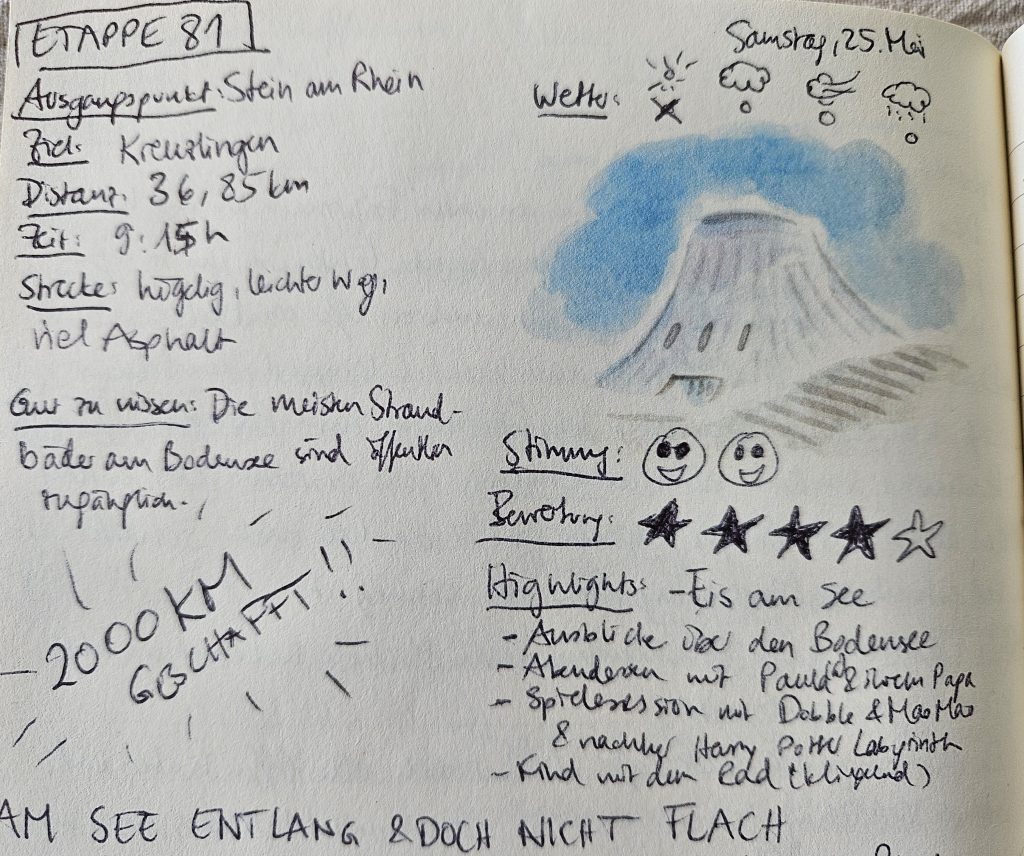 ETAPPE 81
Samstag, 25. Mai
Ausgangspunkt: Stein am Rhein
Ziel: Kreuzlingen
Distanz: 36,85 km
Zeit: 9:15h
Strecke: hügelig, leichter Weg,
viel Asphalt
Gut zu wissen: Die meisten Strand-
bäder am Bodensee sind öffentlich
zugänglich.
2000 KM
GESCHAFFT!!
Wetter:
Stimmung:
Bewertung:
Highlights: - Eis am See
- Ausblicke über den Bodensee
- Abendessen mit Paula & ihrem Papa
- Spielesession mit Dobble & Mao Mao
& nachher Harry Potter Labyrinth
- Kind mit dem Rad (klingelnd)
AM SEE ENTLANG & DOCH NICHT FLACH